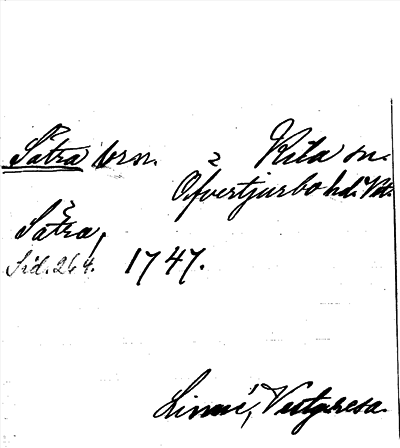 Sätra brn. Kila sn.
Öfvertjurbo hd. Vstm.
Sätra,
Sid. 264. 1747.
Linné, Vestg. resa.